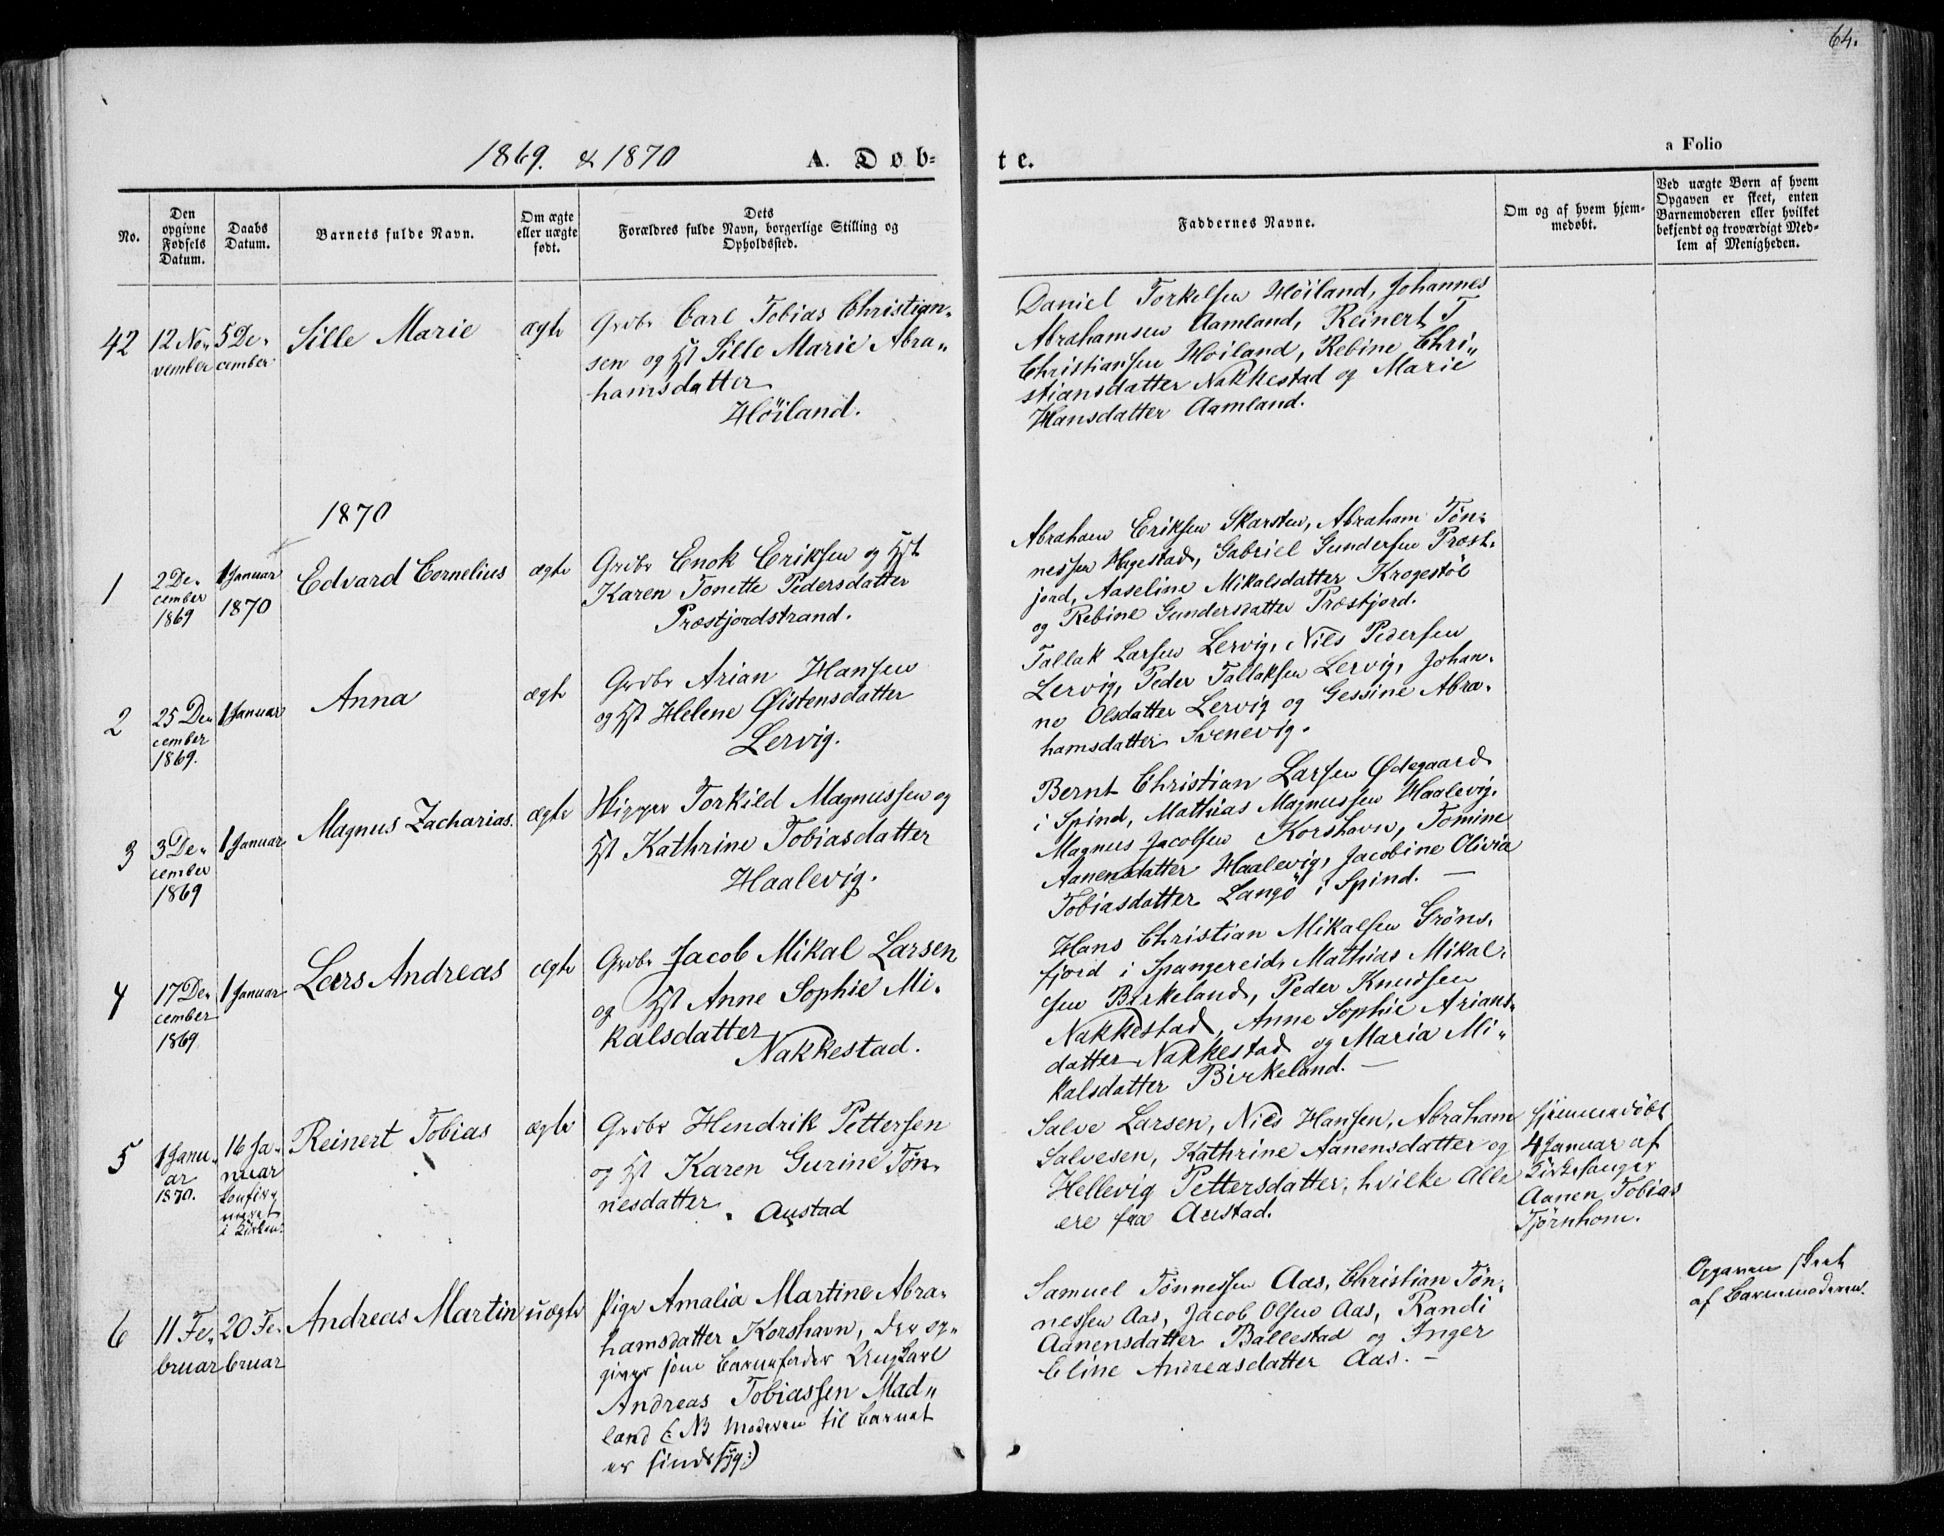 64.
1869. & 1870 A. Døb-
te.
a Folio
No.
Den
opgivne
Fødsels
Datum.
Daabs
Datum.
Barnets fulde Navn.
Om ægte
eller uægte
født.
Dets
Forældres fulde Navn, borgerlige Stilling og
Opholdssted.
Faddernes Navne.
Om og af hvem hjem-
medøbt.
Ved uægte Børn af hvem
Opgaven er skeet, enten
Barnemoderen eller hvilket
bekjendt og troværdigt Med-
lem af Menigheden.
42
12 No-
vember
5 De-
cember
Sille Marie
ægte
Grdbr Carl Tobias Christian-
sen og Hst Sille Marie Abra-
hamsdatter
Höiland.
Daniel Torkelsen Höiland, Johannes
Abrahamsen Aamland, Reinert T
Christiansen Höiland, Rebine Chri-
stiansdatter Nakkestad og Marie
Hansdatter Aamland.
1870
1
2 De-
cember
1869
1 Januar
1870
Edvard Cornelius
ægte
Grdbr Enok Eriksen og Hst
Karen Tonette Pedersdatter
Præstjordstrand.
Abraham Eriksen Skarsten, Abraham Tøn-
nessen Hagestad, Gabriel Gundersen Præst-
jord, Aaseline Mikalsdatter Krogestöl
og Rebine Gundersdatter Præstjord.
2
25 De-
cember
1869.
1 Januar
Anna
ægte
Grdbr Arian Hansen
og Hst Helene Øistensdatter
Lervig.
Tallak Larsen Lervig, Nils Pedersen
Lervig, Peder Tallaksen Lervig, Johan-
ne Olsdatter Lervig og Gessine Abra-
hamsdatter Svenevig.
3
3 De-
cember
1869
1 Januar
Magnus Zacharias.
ægte
Skipper Torkild Magnussen og
Hst Kathrine Tobiasdatter
Haalevig.
Bernt Christian Larsen Ødegaard
i Spind, Mathias Magnussen Haalevig,
Magnus Jacobsen Korshavn, Tomine
Aanensdatter Haalevig, Jacobine Olivia
Tobiasdatter Langö i Spind. —
4
17 De-
cember
1869
1 Januar
Lars Andreas
ægte
Grdbr Jacob Mikal Larsen
og Hst Anne Sophie Mi-
kalsdatter
Nakkestad.
Hans Christian Mikalsen Gröns-
fjord i Spangereid, Mathias Mikal-
sen Birkeland, Peder Knudsen
Nakkestad, Anne Sophie Arians-
datter Nakkestad og Maria Mi-
kalsdatter Birkeland. —
5
1 Janu-
ar
1870.
16 Ja-
nuar
confir-
meret
i Kirken.
Reinert Tobias
ægte
Grdbr Hendrik Pettersen
og Hst Karen Gurine Tøn-
nesdatter
Austad
Salve Larsen, Niels Hansen, Abraham
Salvesen, Kathrine Aanensdatter og
Hellevig Pettersdatter, hvilke Alle
ere fra Austad.
Hjemmedøbt
4 Januar af
Kirkesanger
Aanen Tobias
Tjørnhom.
6
11 Fe-
bruar
20 Fe-
bruar
Andreas Martin
uægte
Pige Amalia Martine Abra-
hamsdatter Korshavn, der op-
giver som Barnefader Ungkarl
Andreas Tobiassen Mad-
land (: NB Moderen til Barnet
er sindssyg:)
Samuel Tønnessen Aas, Christian Tøn-
nessen Aas, Jacob Olsen Aas, Randi
Aanensdatter Ballestad og Inger
Eline Andreasdatter Aas. —
Opgaven skeet
af Barnemoderen.